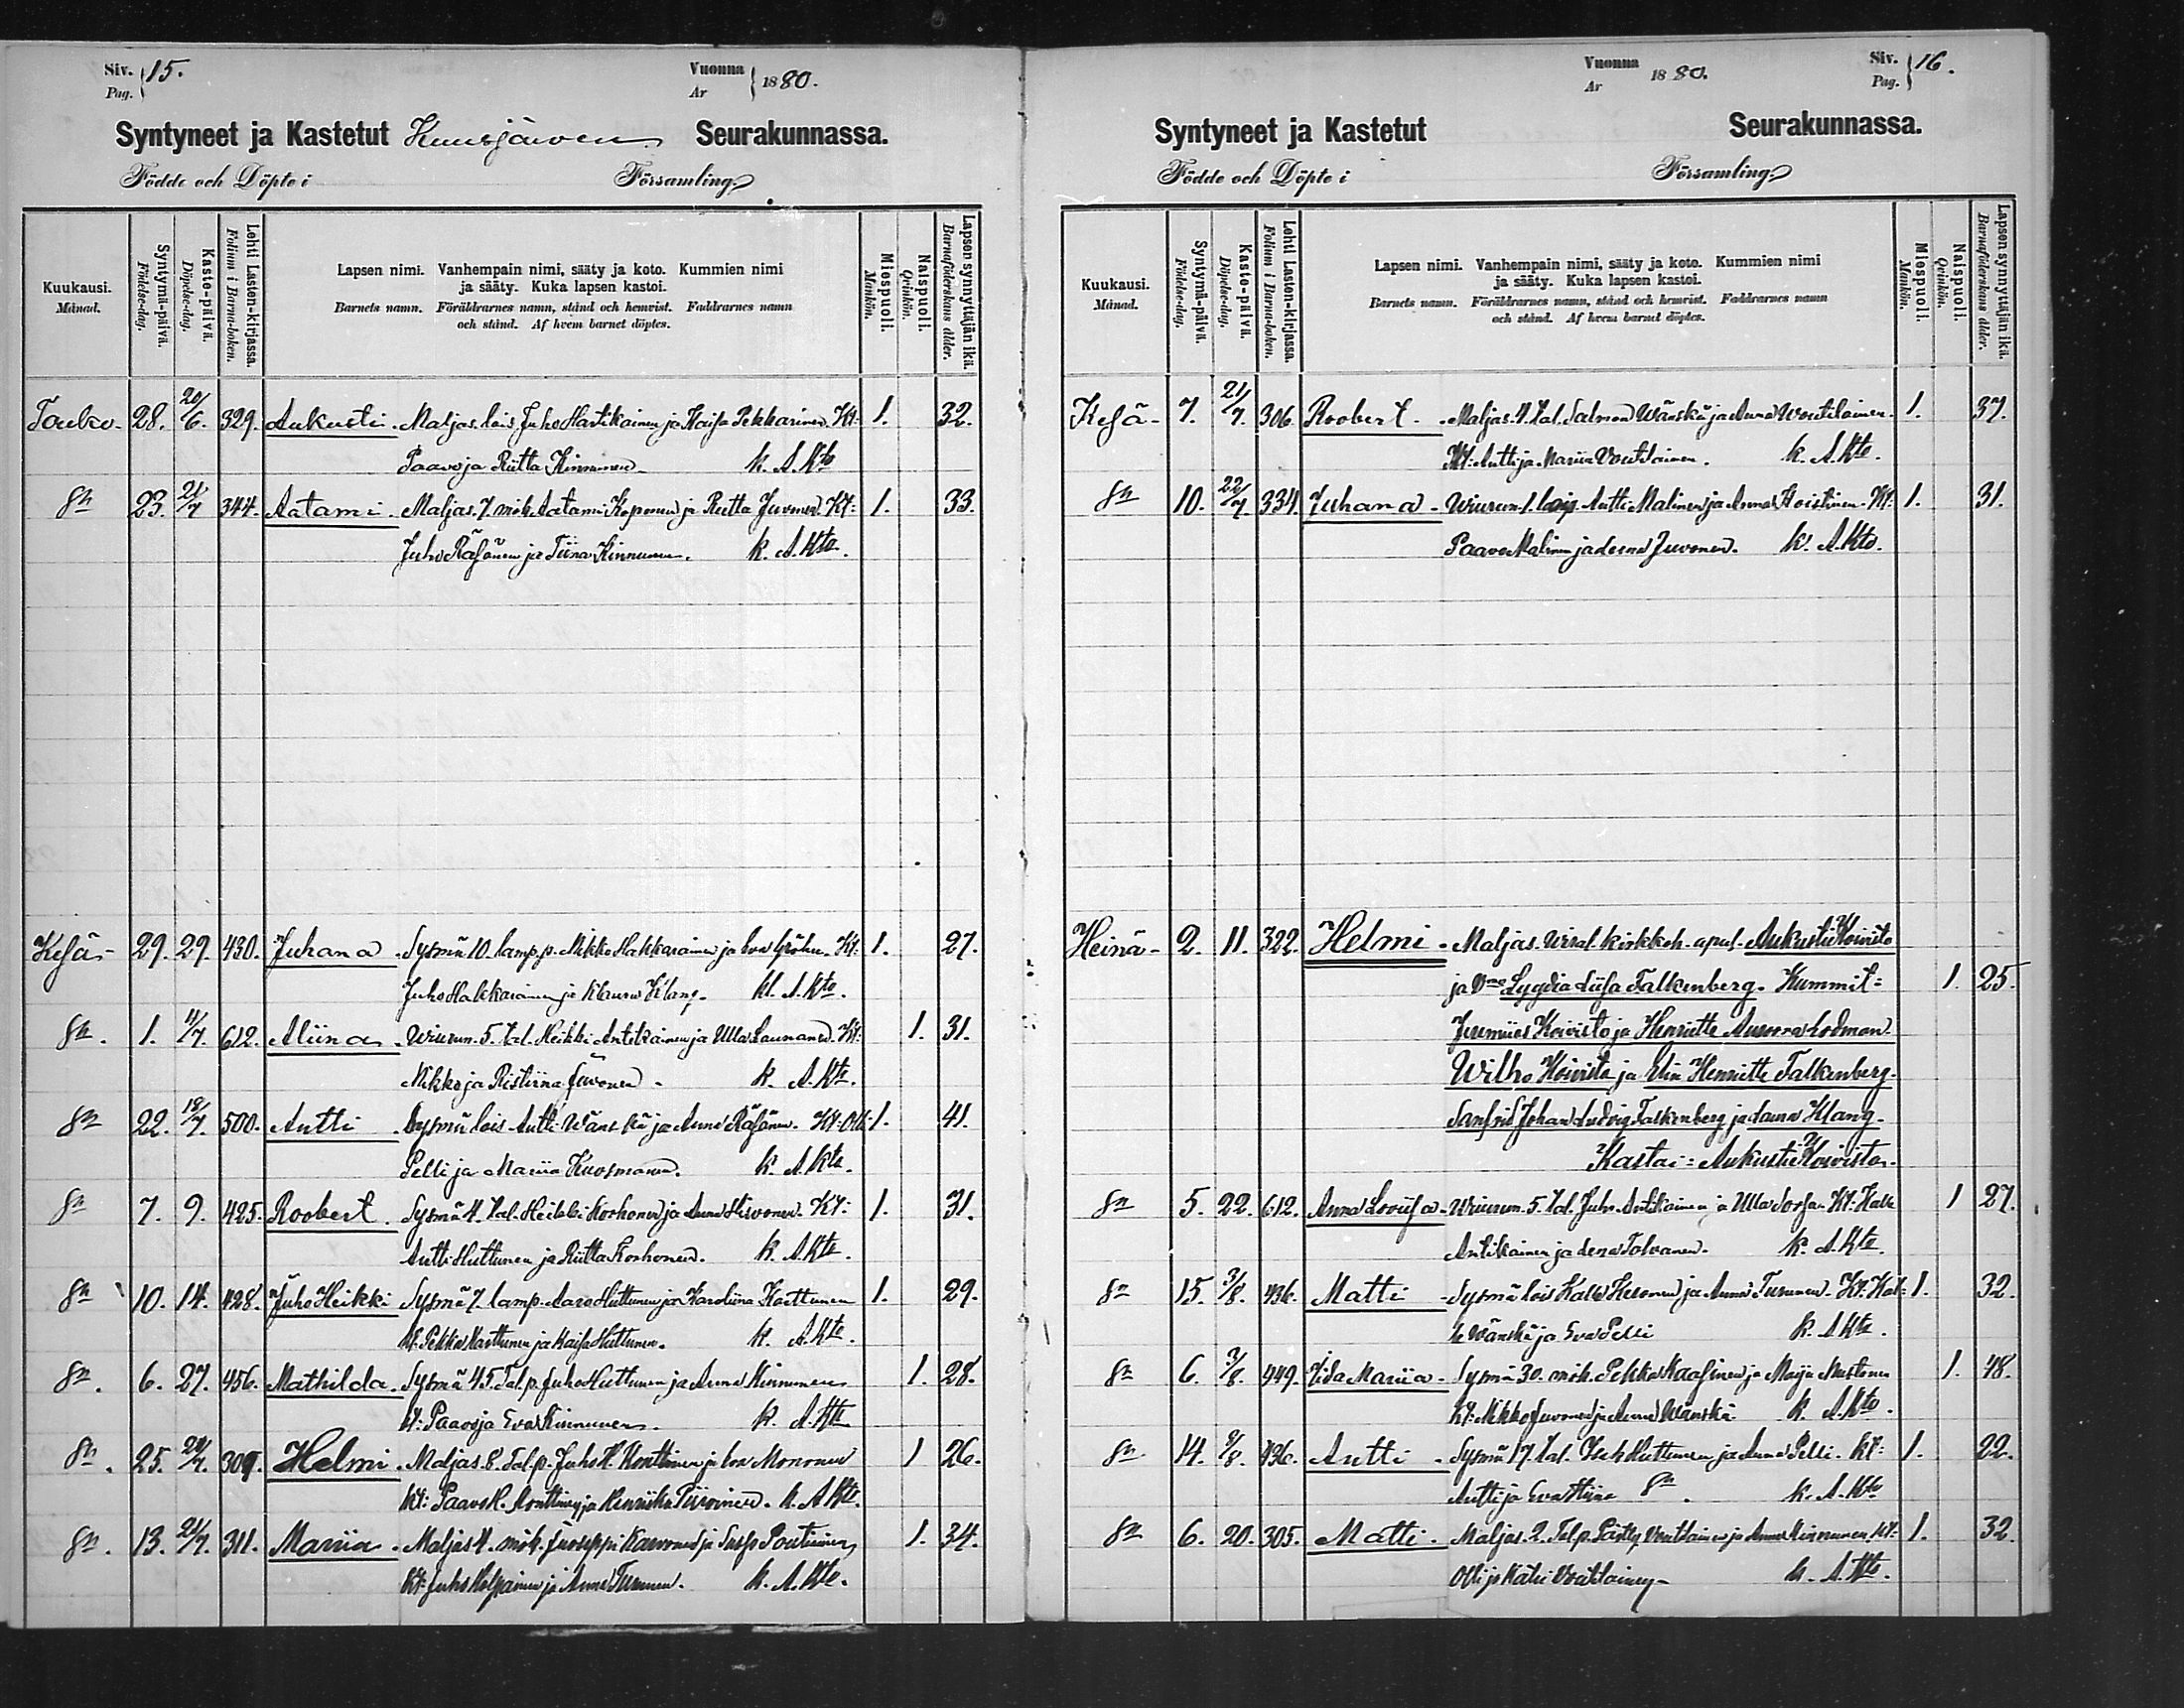 Siv. Pag. } 15.
Vuonna År } 1880.
Syntyneet ja Kastetut Kuusjärven Seurakunnassa.
Födde och Döpte i Församling
Kuukausi. Månad.
Syntymä-päivä. Födelse-dag.
Kaste-päivä. Döpelse-dag.
Lehti Lasten-kirjassa. Folium i Barna-boken.
Lapsen nimi. Vanhempain nimi, sääty ja koto. Kummien nimi
ja sääty. Kuka lapsen kastoi.
Barnets namn. Föräldrarnes namn, stånd och hemvist. Faddrarnes namn
och stånd. Af hvem barnet döptes.
Miespuoli. Mankön.
Naispuoli. Qvinkön.
Lapsen synnyttäjän ikä. Barnaföderskans ålder.
Touko- 28. 20/6. 329. Aukusti. Maljas. lois Juho Hartikainen ja Kaisa Pekkarinen. Kt: 1. 32.
Paavo ja Riitta Kinnunen K. A. Kto
Sn 23. 21/7 344. Aatami. Maljas. 7. mök. Aatami Koponen ja Riitta Juvonen. Kt: 1. 33.
Juho Räsänen ja Tiina Kinnunen. K. A. Kto.
Kesä- 29. 29. 430. Juhana. Sysmä 10. lamp. p. Mikko Hakkarainen ja Eva Gröhn. Kt: 1. 27.
Juho Hakkarainen ja Klaura Klang. Kl. A. Kto.
Sn. 1. 11/7. 612. Aliina. Wiurun. 5. tal. Heikki Antikainen ja Ulla Launanen. Kt: 1. 31.
Mikko ja Ristiina Juvonen. K. A. Kto.
Sn 22. 18/7. 500. Antti. Sysmä lois Antti Wänskä ja Anna Räsänen. Kt: Olli 1. 41.
Pelli ja Mariia Kuosmanen. K. A. Kto.
Sn 7. 9. 425. Roobert. Sysmä 4. tal. Heikki Korhonen ja Anna Hirvonen. Kt: 1. 31.
Antti Huttunen ja Riitta Korhonen. K. A. Kto.
Sn 10. 14. 428. Juho Heikki Sysmä 7. lamp. Aaro Huttunen ja Karoliina Karttunen 1. 29.
kt. Pekka Karttunen ja Kaisa Huttunen. K. A. Kto.
Sn. 6. 27. 456. Mathilda. Sysmä 45. Tal. p. Juho Huttunen ja Anna Kinnunen 1. 28.
kt: Paavo ja Eva Kinnunen. K. A. Kto
Sn. 25. 307. Helmi. Maljas. 8. Tal. p. Juho H. Konttinen ja Eva Mononen 1 26.
kt: Paavo K. Konttinen ja Henriika Piiroinen. K. A. Kto.
Sn. 13. 21/7. 311. Mariia. Maljas 4. mök. Juoseppi Karvonen ja Susso Poutiainen 1. 34.
kt: Juho Holpainen ja Anna Turunen. K. A. Kto.
Vuonna År 1880.
Siv. Pag. } 16.
Syntyneet ja Kastetut Seurakunnassa.
Födde och Döpte i Församling
Kuukausi. Månad.
Syntymä-päivä. Födelse-dag.
Kaste-päivä. Döpelse-dag.
Lehti Lasten-kirjassa. Folium i Barna-boken.
Lapsen nimi. Vanhempain nimi, sääty ja koto. Kummien nimi
ja sääty. Kuka lapsen kastoi.
Barnets namn. Föräldrarnes namn, stånd och hemvist. Faddrarnes namn
och stånd. Af hvem barnet döptes.
Miespuoli. Mankön.
Naispuoli. Qvinkön.
Lapsen synnyttäjän ikä. Barnaföderskans ålder.
Kesä- 7. 21/7. 306. Roobert. Maljas. 4. tal. Salmon Wänskä ja Anna Woutilainen. 1. 37.
Kt: Antti ja Mariia Voutilainen. K. A. Kto.
Sn 10. 22/7. 334. Juhana. Wiurun. 1. lois. Antti Malinen ja Anna Koistinen. Kt: 1. 31.
Paavo Malinen ja Leena Juvonen. K. A. Kto.
Heinä- 2. 11. 322. Helmi. Maljas. viral. kirkkoh. apul. Aukusti Koivisto
ja Vmo Lygdia Liisa Falkenberg. Kummit: 1. 25.
Jeremiies Koivisto ja Henriette Aurora Lodman.
Wilho Koivisto ja Elin Henriette Falkenberg.
Sanfrid Johan Ludvig Falkenberg ja Laura Klang.
Kastai: Aukusti Koivisto.
Sn 5. 22. 612. Anna Loviisa. Wiurun. 5. tal. Juho Antikainen ja Ulla Sorsa. Kt: Kalle 1 27.
Antikainen ja Lena Tolvanen. K. A. Kto.
Sn 15. 3/8. 436. Matti Sysmä lois Kalle Kesonen ja Anna Turunen. Kt: Kal- 1. 32.
le Wänskä ja Eva Pelli K. A. Kto.
Sn 6. 3/8. 449. Iida Mariia. Sysmä 30. mök. Pekka Kaasinen ja Maija Mustonen 1. 48.
kt: Mikko Juvonen ja Anna Wänskä K. A. Kto.
Sn 14. 9/8. 436. Antti. Sysmä 17. tal. Huttunen ja Anna Pelli. kt: 1. 22.
Antti ja Eva Stiina Sn. K. A. Kto
Sn 6. 20. 305. Matti. Maljas. 2. Tal. p. Pärtty Voutilainen ja Anna Kinnunen. kt: 1. 32
Olli ja Katri Voutilainen K. A. Kto.